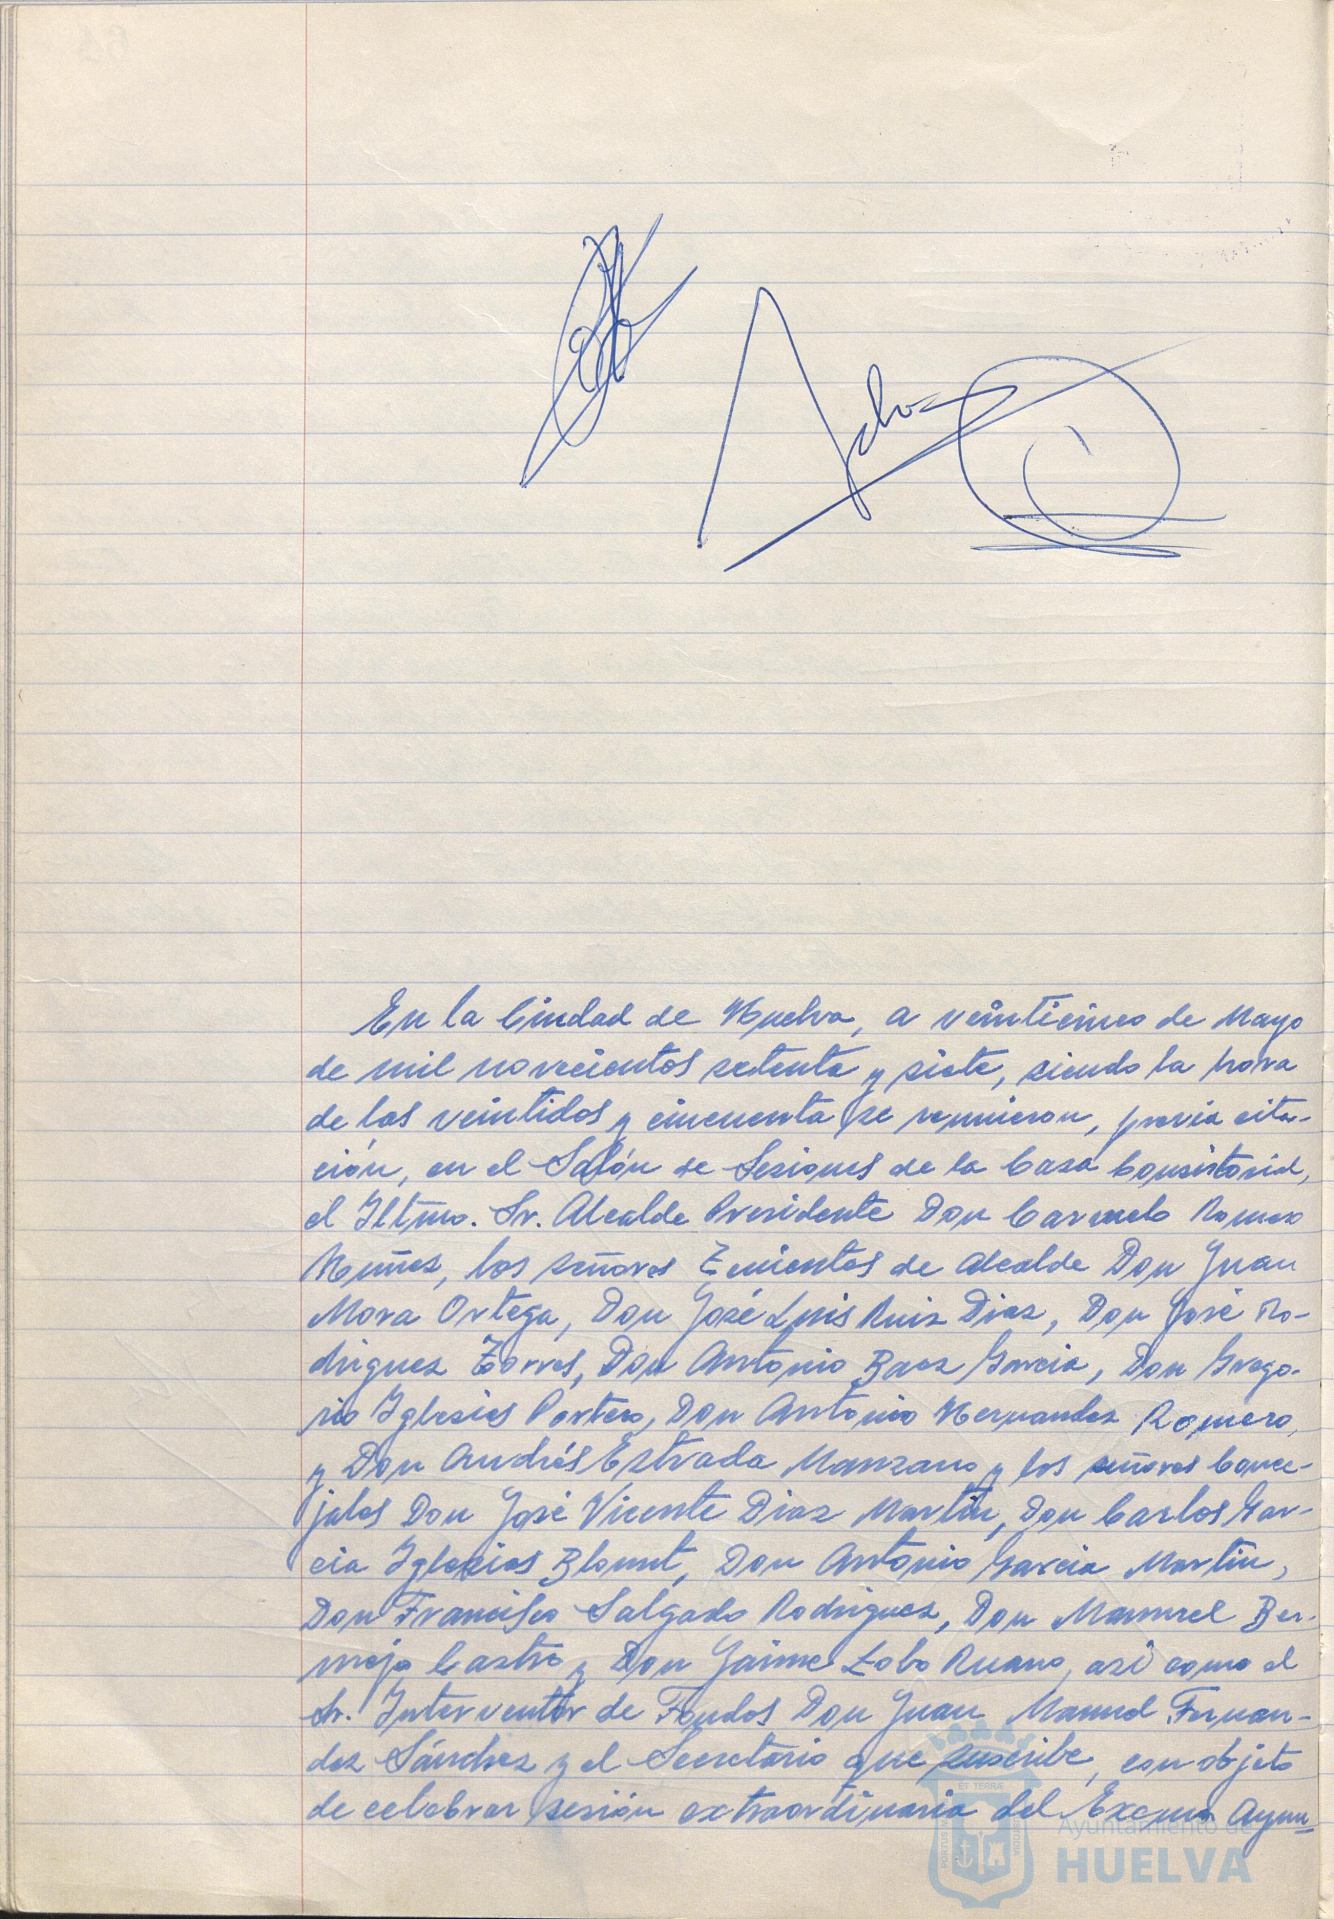 En la Ciudad de Huelva, a veinticinco de Mayo
de mil novecientos setenta y siete, siendo la hora
de las veintidos y cincuenta se reunieron, previa cita-
ción, en el Salón de Sesiones de la Casa Consistorial,
el Iltmo. Sr. Alcalde Presidente Don Carmelo Romero
Nuñez, los señores Tenientes de Alcalde Don Juan
Mora Ortega, Don José Luis Ruiz Diaz, Don José Ro-
driguez Torres, Don Antonio Baez Garcia, Don Grego-
rio Iglesias Portero, Don Antonio Hernandez Romero,
y Don Andrés Estrada Manzano y los señores Conce-
jales Don José Vicente Diaz Martin, Don Carlos Gar-
cia Iglesias Blount, Don Antonio Garcia Martin,
Don Francisco Salgado Rodriguez, Don Manuel Ber-
mejo Castro y Don Jaime Lobo Ruano, asi como el
Sr. Interventor de Fondos Don Juan Manuel Fernan-
dez Sánchez y el Secretario que suscribe, con objeto
de celebrar sesión extraordinaria del Excmo Ayun-
ET TERRAE
Ayuntamiento de
HUELVA